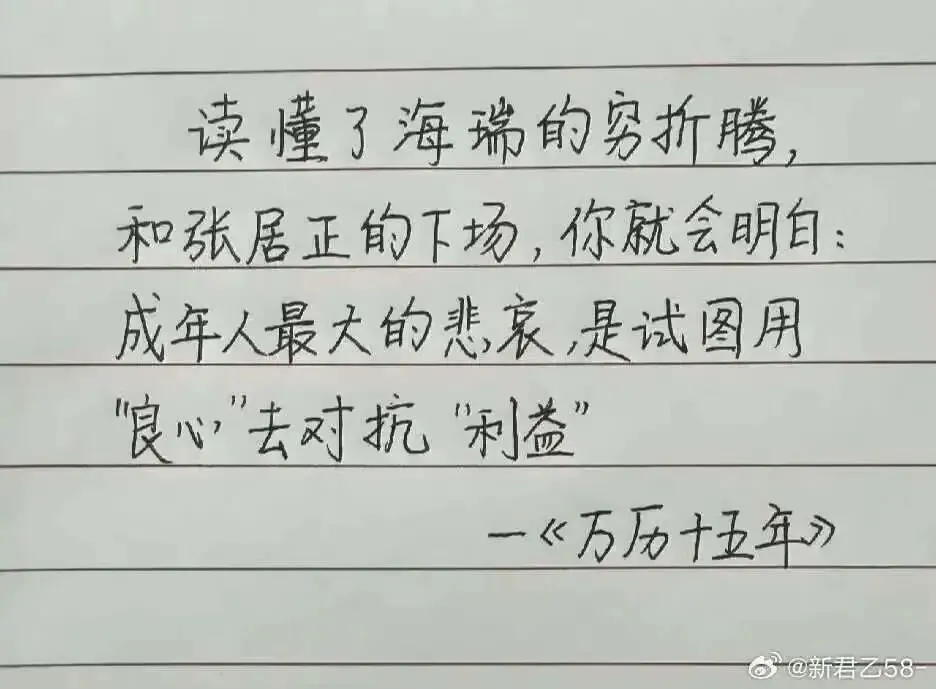 读懂了海瑞的穷折腾，
和张居正的下场，你就会明白：
成年人最大的悲哀，是试图用
“良心”去对抗“利益”
—《万历十五年》
@新君乙58-